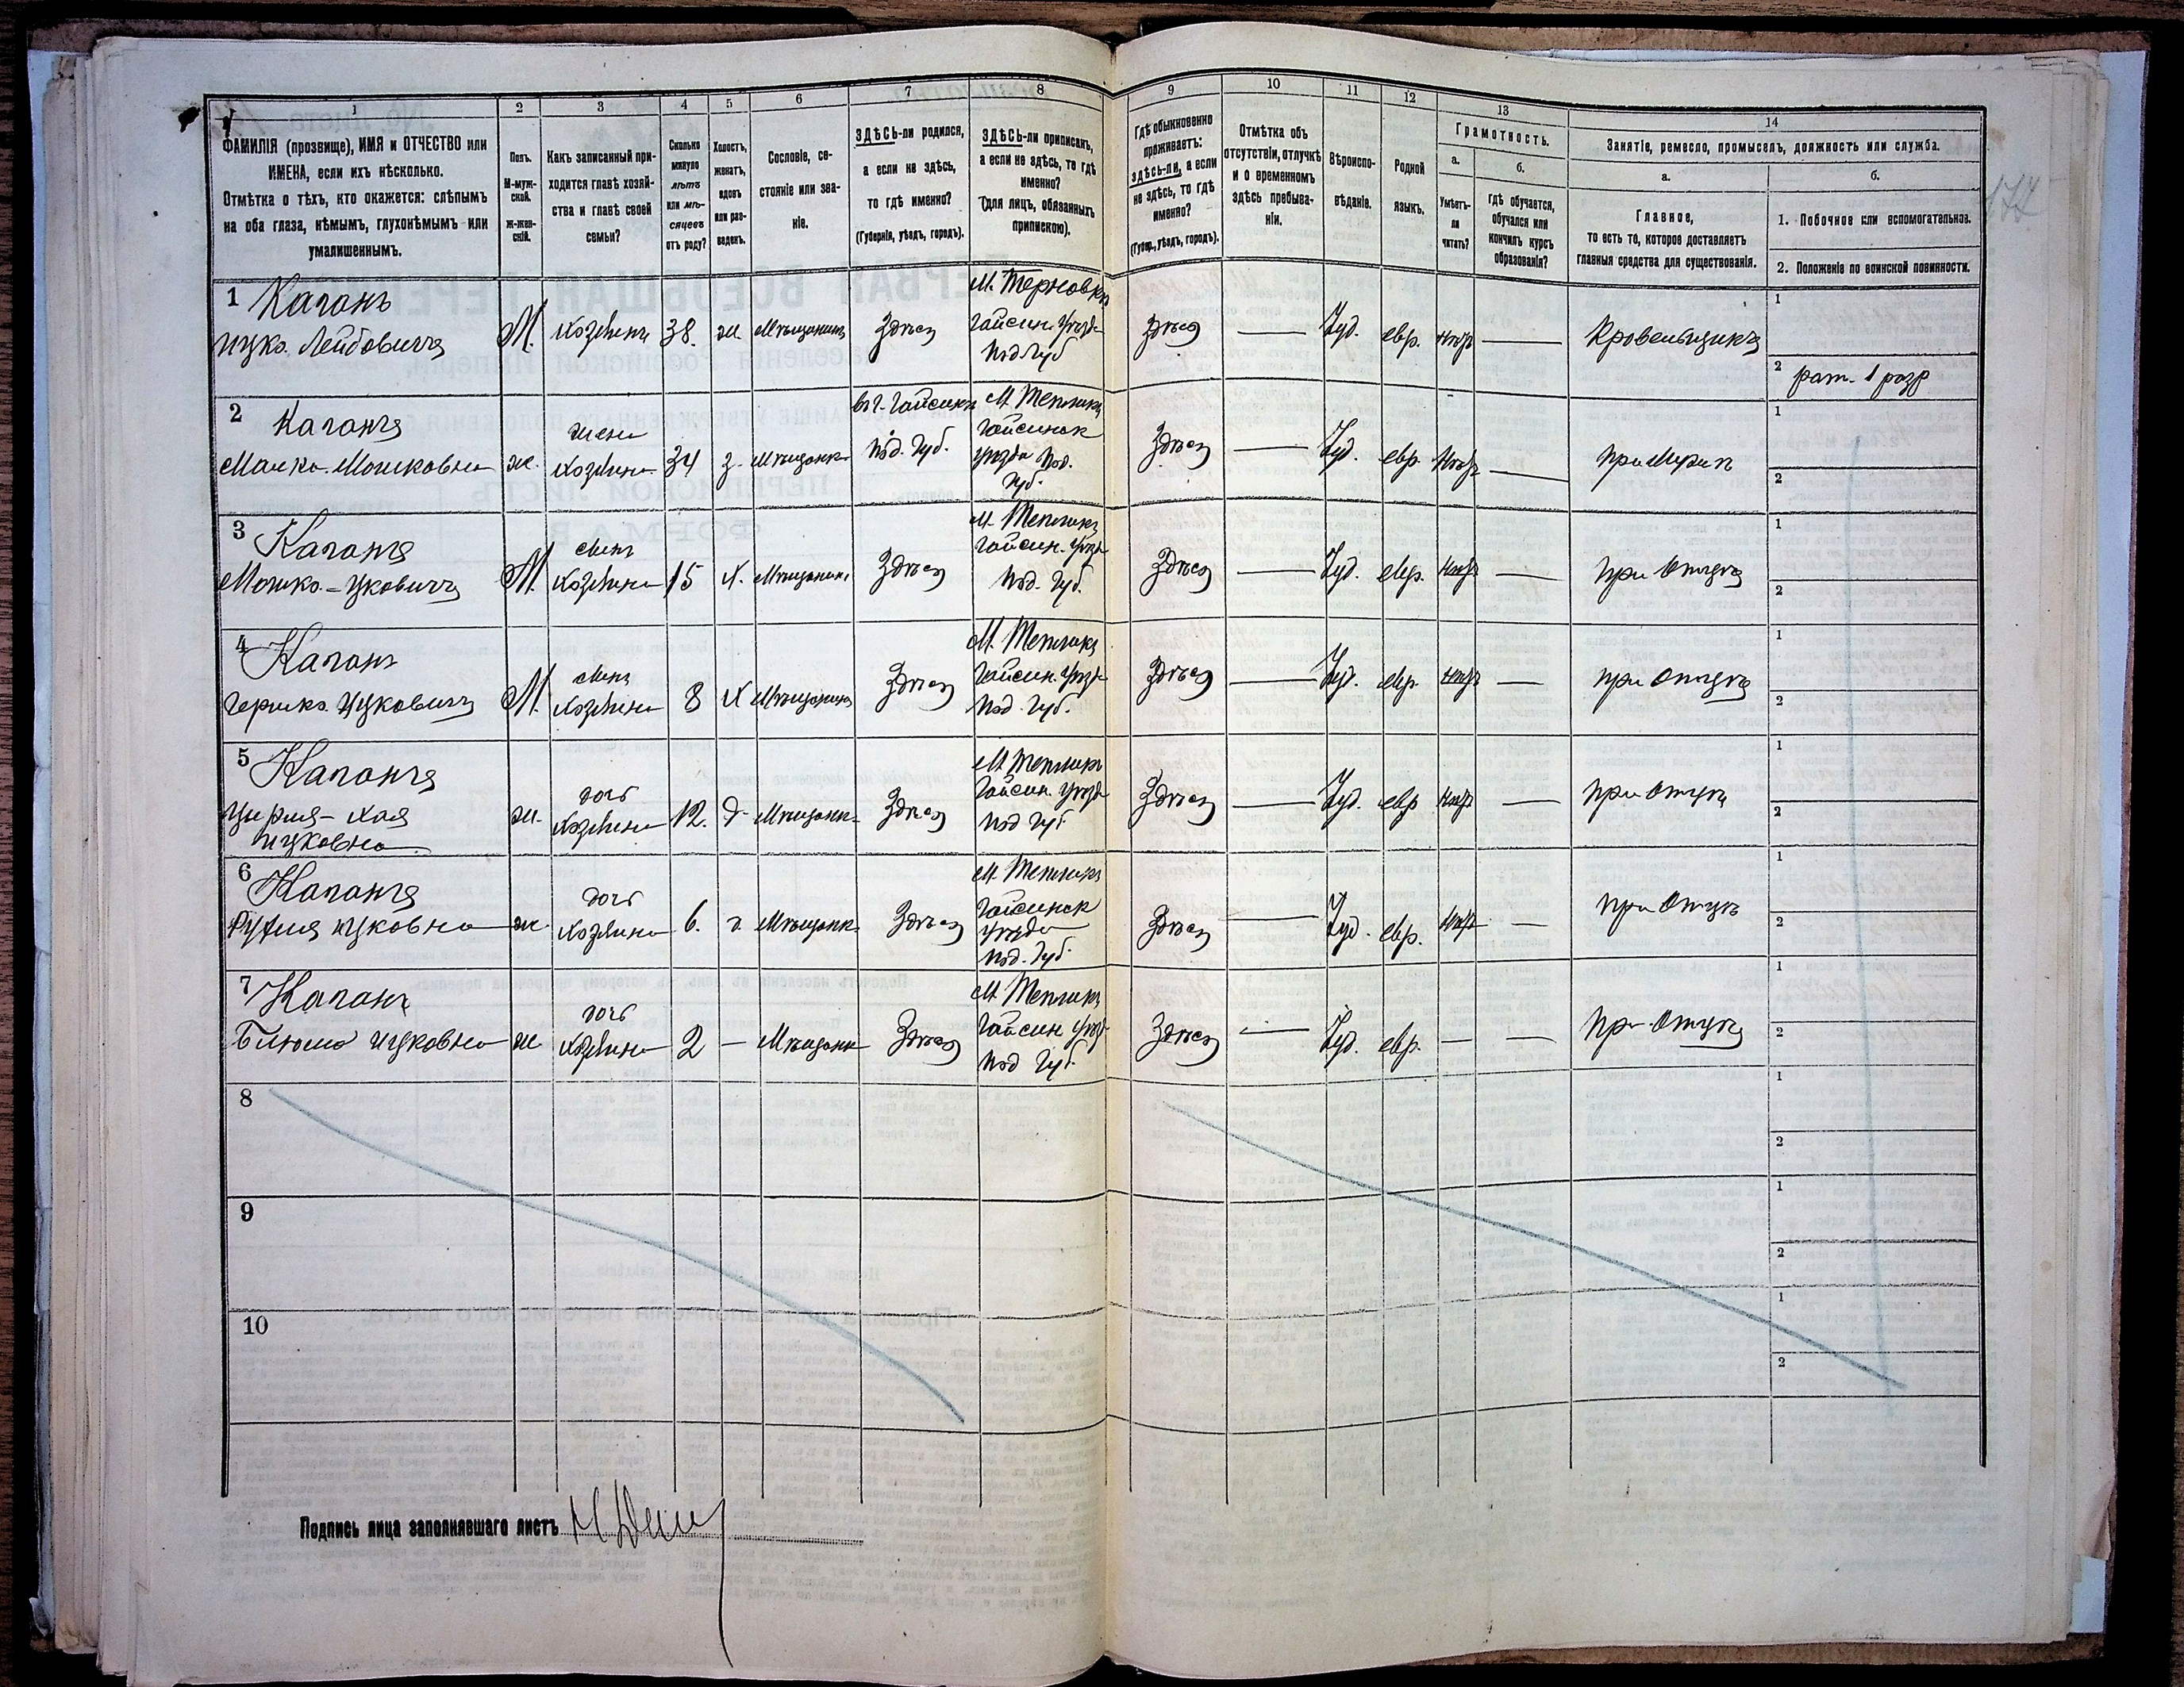 1
2
3
4
5
6
7
8
9
10
11
12
13
14
ФАМИЛІЯ (прозвище), ИМЯ и ОТЧЕСТВО или
ИМЕНА, если ихъ нѣсколько.
Отмѣтка о тѣхъ, кто окажется: слѣпымъ
на оба глаза, нѣмымъ, глухонѣмымъ или
умалишеннымъ.
Полъ.
М-муж-
ской.
Ж-жен-
скій.
Какъ записанный при-
ходится главѣ хозяй-
ства и главѣ своей
семьи?
Сколько
минуло
лѣтъ
или мѣ-
сяцевъ
отъ роду?
Холостъ,
женатъ,
вдовъ
или раз-
веденъ.
Сословіе, со-
стояніе или зва-
ніе.
ЗДѢСЬ-ли родился,
а если не здѣсь,
то гдѣ именно?
(Губернія, уѣздъ, городъ).
ЗДѢСЬ-ли приписанъ,
а если не здѣсь, то гдѣ
именно?
(для лицъ, обязанныхъ
припискою).
Гдѣ обыкновенно
проживаетъ:
здѣсь-ли, а если
не здѣсь, то гдѣ
именно?
(Губер., уѣздъ, городъ).
Отмѣтка объ
отсутствіи, отлучкѣ
и о временномъ
здѣсь пребыва-
ніи.
Вѣроиспо-
вѣданіе.
Родной
языкъ.
Грамотность.
а.
Умѣетъ-
ли
читать?
б.
Гдѣ обучается,
обучался или
кончилъ курсъ
образованія?
Занятіе, ремесло, промыселъ, должность или служба.
а.
Главное,
то есть то, которое доставляетъ
главныя средства для существованія.
б.
1. Побочное или вспомогательное.
2. Положеніе по воинской повинности.
1 Каганъ
Ицко Лейбовичъ
М.
Хозяинъ
38.
ж.
Мѣщанинъ
Здѣсь
М. Терновка
Гайсин. Уѣзда
Под Губ
Здѣсь
Іуд.
евр.
нѣтъ
Кровельщикъ
1
2 рат. 1 разр
2 Каганъ
Малка Мошковна
ж.
жена
Хозяина
34
з.
Мѣщанка
въ г. Гайсинѣ
Под. Губ.
М Тепликъ
Гайсинск
уѣзда Под.
Губ.
Здѣсь
Іуд.
евр.
Нѣтъ
при Мужѣ
1
2
3 Каганъ
Мошко-Ицковичъ
М.
сынъ
Хозяина
15
Х.
Мѣщанинъ
Здѣсь
М. Тепликъ
Гайсин. Уѣзд
Под. Губ.
Здѣсь
Іуд.
евр.
нѣтъ
при Отцѣ
1
2
4 Каганъ
Гершко Ицковичъ
М.
сынъ
Хозяина
8
Х
Мѣщанинъ
Здѣсь
М. Тепликъ
Гайсин. Уѣзд
Под. Губ.
Здѣсь
Іуд.
евр.
нѣтъ
при Отцѣ
1
2
5 Каганъ
Цирля-Хая
Ицковна
ж.
дочь
Хозяина
12.
д.
Мѣщанка
Здѣсь
М Тепликъ
Гайсин. уѣзд
Под Губ
Здѣсь
Іуд.
евр
нѣтъ
при Отцѣ
1
2
6 Каганъ
Ицковна
ж.
дочь
Хозяина
6.
д.
Мѣщанк
Здѣсь
М. Тепликъ
Гайсинск
уѣзда
Под. Губ.
Здѣсь
Іуд.
евр.
нѣтъ
при Отцѣ
1
2
7 Каганъ
Блюма Ицковна
ж
дочь
Хозяина
2
Мѣщанк
Здѣсь
М Тепликъ
Гайсин Уѣзд
Под Губ
Здѣсь
Іуд.
евр.
При Отцѣ
1
2
8
1
2
9
1
2
10
1
2
Подпись лица заполнявшаго листъ